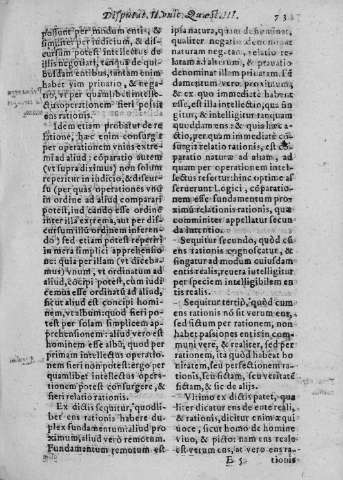 Disputat. II. vnic. Quæst. III.
73
possunt per modum entis, &
similiter per iudicium, & dis-
cursum potest intellectus de
illis negotiari, tanquã de qui-
busdam entibus, tantam enim
habet vim priuatio, & nega-
tio, vt per quamlibet intelle-
ctus operationem fieri possit
ens rationis.
Idem etiam probatur de re-
latione, hæc enim consurgit
per operationem vnius extre-
mi ad aliud: cõparatio autem
(vt supra diximus) non solum
reperitur in iudicio, & discur-
su (per quas operationes vnũ
in ordine ad aliud comparari
potest, indicando esse ordinẽ
inter illa extrema, aut per dis-
cursum illũ ordinem inferen-
do) sed etiam potest reperiri
in mera simplici apprehensio-
ne: quia per illam (vt diceba-
mus) vnum, vt ordinatum ad
aliud, cõcipi potest, cum iudi-
cemus esse ordinatũ ad aliud,
sicut aliud est concipi homi-
nem, vt album: quod fieri po-
test per solam simplicem ap-
prehensionem: aliud vero est
hominem esse albũ, quod per
primam intellectus operatio-
nem fieri non potest: ergo per
quamlibet intellectus opera-
tionem potest consurgere, &
fieri relatio rationis.
Ex dictis sequitur, quodli-
bet ens rationis habere du-
plex fundamentum: aliud pro
ximum, aliud verò remotum.
Fundamentum remotum est
ipsa natura, quam denominat,
qualiter negatio denominat
naturam negatam, relatio
relatam: priuatio,
denominat illam priuatam. Fũ
damentum vero proximum,
& ex quo immediatè habent
esse, est illa intellectio, qua fin
gitur, & intelligitur tanquam
quoddam ens: & quia hæc a-
ctio, per quam immediatè cõ-
surgit relatio rationis, est cõ-
paratio naturæ ad aliam, ad
quam per operationem intel-
lectus refertur: hinc optimè as
seruerunt Logici, cõparatio-
nem esse fundamentum pro-
ximũ relationis rationis, quæ
communiter appellatur secun
da intentio.
Sequitur secundo, quòd cũ
ens rationis cognoscatur, &
fingatur ad modum cuiusdam
entis realis, reuera intelligitur
per speciem intelligibilem en
tis realis.
Sequitur tertiò, quòd cum
ens rationis nõ sit verum ens,
sed fictum per rationem, non
habet passiones entis in com-
muni verè, & realiter, sed per
rationem, ita quòd habeat bo
nitatem, seu perfectionem ra-
tionis, seu fictam, seu veritatẽ
fictam, & sic de alijs.
Vltimo ex dictis patet, qua
liter dicatur ens de ente reali,
& rationis, dicitur enim æqui
uoce, sicut homo de homine
viuo, & picto: nam ens reale
est verum ens, at vero ens ra-
E 5
tionis